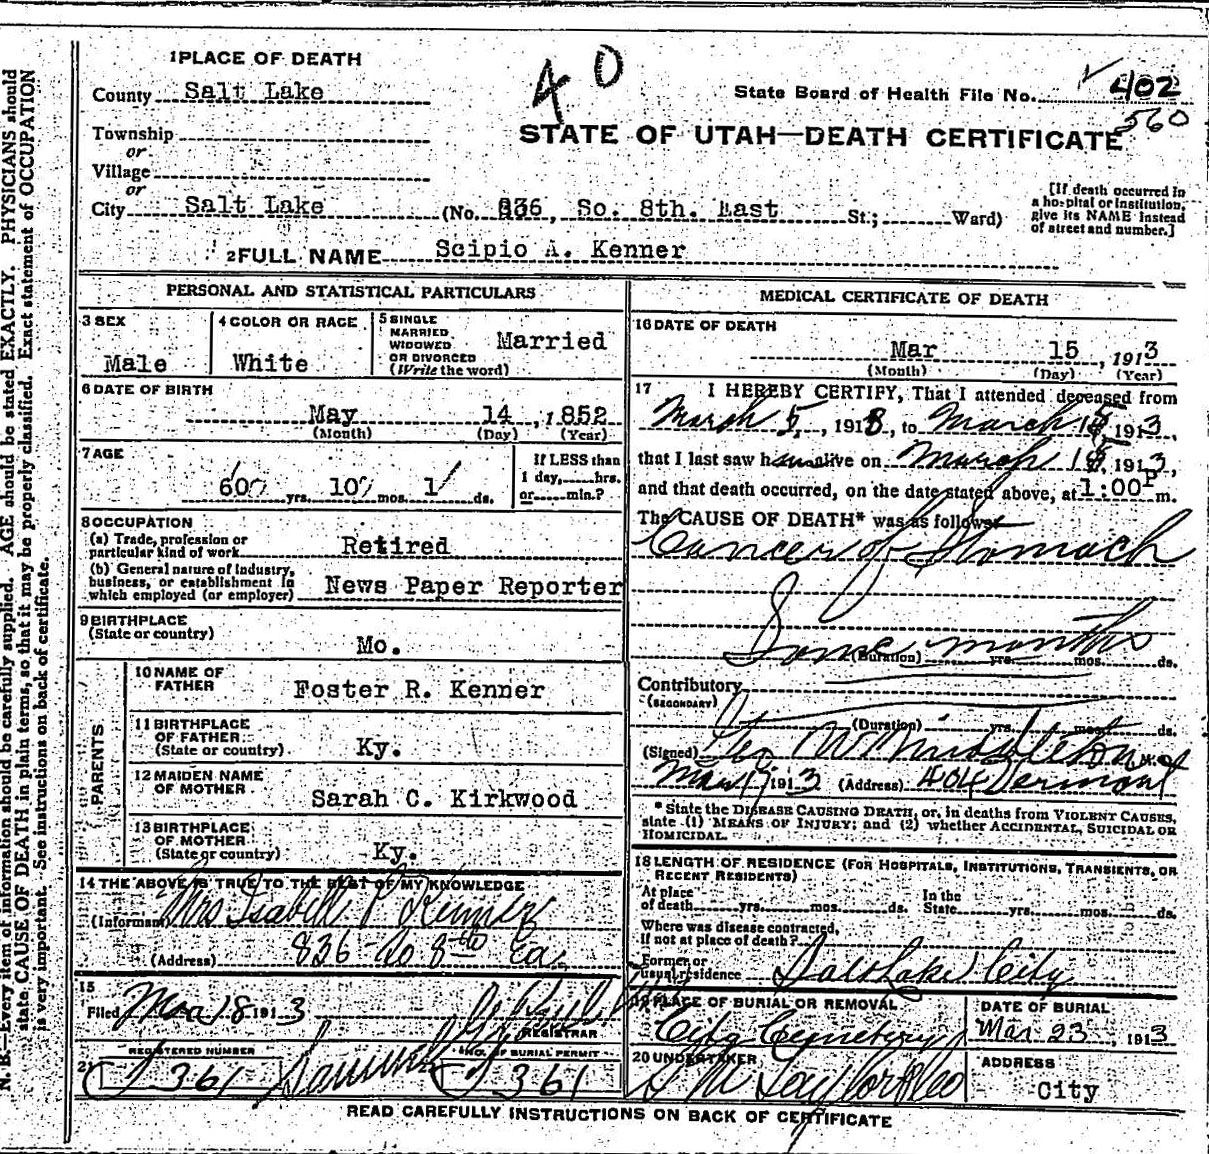 1 PLACE OF DEATH
County Salt Lake
40
State Board of Health File No. 402
560
STATE OF UTAH—DEATH CERTIFICATE
Township
or
Village
or
City Salt Lake (No. 836, So. 8th. East St.; Ward)
[If death occurred in
a hospital or institution,
give its NAME instead
of street and number.]
2 FULL NAME Scipio A. Kenner
PERSONAL AND STATISTICAL PARTICULARS
3 SEX
Male
4 COLOR OR RACE
White
5 SINGLE
MARRIED
WIDOWED
OR DIVORCED
(Write the word)
Married
6 DATE OF BIRTH
May 14, 1852
(Month) (Day) (Year)
7 AGE
60 yrs. 10 mos. 1 ds.
If LESS than
1 day, hrs.
or min.?
8 OCCUPATION
(a) Trade, profession or
particular kind of work Retired
(b) General nature of industry,
business, or establishment in
which employed (or employer) News Paper Reporter
9 BIRTHPLACE
(State or country)
Mo.
PARENTS
10 NAME OF
FATHER
Foster R. Kenner
11 BIRTHPLACE
OF FATHER
(State or country)
Ky.
12 MAIDEN NAME
OF MOTHER
Sarah C. Kirkwood
13 BIRTHPLACE
OF MOTHER
(State or country)
Ky.
14 THE ABOVE IS TRUE TO THE BEST OF MY KNOWLEDGE
(Informant) Mrs Isabell P Kenner
(Address) 836 So 8th Ea.
15
Filed Mar 18 1913
REGISTRAR
REGISTERED NUMBER
361
NO. OF BURIAL PERMIT
361
MEDICAL CERTIFICATE OF DEATH
16 DATE OF DEATH
Mar 15, 1913
(Month) (Day) (Year)
17 I HEREBY CERTIFY, That I attended deceased from
March 5, 1913, to March 15, 1913,
that I last saw him alive on March 15, 1913,
and that death occurred, on the date stated above, at 1:00 P m.
The CAUSE OF DEATH* was as follows:
Cancer of Stomach
Some months
(Duration) yrs. mos. ds.
Contributory
(SECONDARY)
(Duration) yrs. mos. ds.
(Signed) Geo W Middleton M.D.
Mar 17 1913 (Address) 404 Vermont
* State the DISEASE CAUSING DEATH, or, in deaths from VIOLENT CAUSES,
state (1) MEANS OF INJURY; and (2) whether ACCIDENTAL, SUICIDAL OR
HOMICIDAL.
18 LENGTH OF RESIDENCE (FOR HOSPITALS, INSTITUTIONS, TRANSIENTS, OR
RECENT RESIDENTS)
At place
of death yrs. mos. ds.
In the
State yrs. mos. ds.
Where was disease contracted,
if not at place of death?
Former or
usual residence Salt Lake City
19 PLACE OF BURIAL OR REMOVAL
City Cemetery
DATE OF BURIAL
Mar 23, 1913
20 UNDERTAKER
S M Taylor & Co
ADDRESS
City
READ CAREFULLY INSTRUCTIONS ON BACK OF CERTIFICATE
N. B.—Every item of information should be carefully supplied. AGE should be stated EXACTLY. PHYSICIANS should
state CAUSE OF DEATH in plain terms, so that it may be properly classified. Exact statement of OCCUPATION
is very important. See instructions on back of certificate.